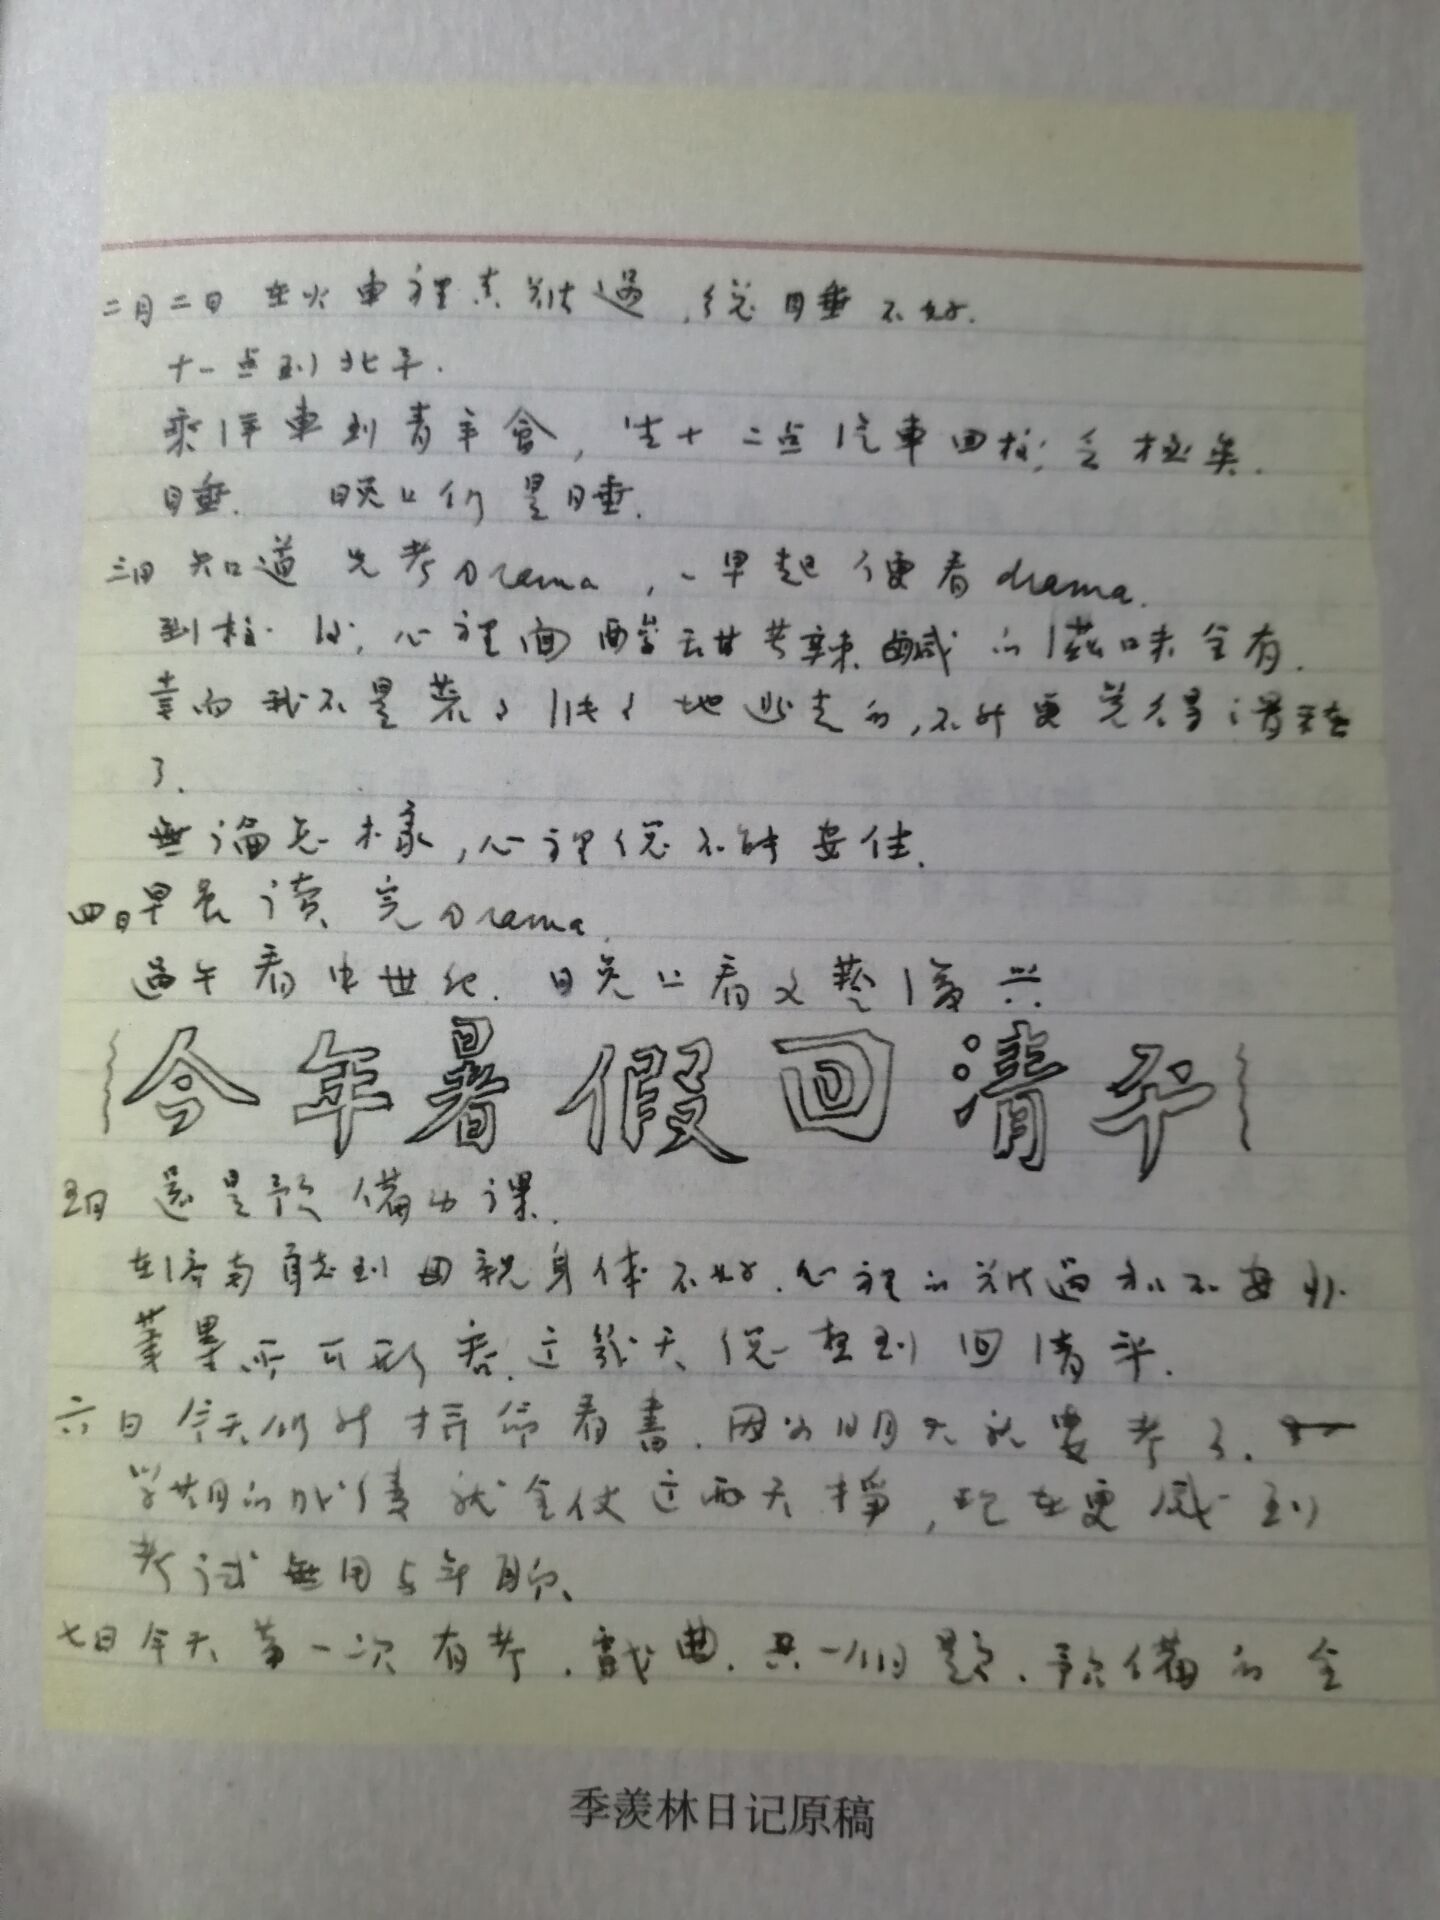 二月二日 在火車裡真難過,總睡不好.
十一点到北平.
乘洋車到青年會,坐十二点汽車回校,乏極矣.
睡. 晚上仍是睡.
三日 知道先考Drama,一早起便看drama.
到校后,心裡面酸甜苦辣鹹的滋味全有.
幸而我不是慌慌忙忙地出走的,不然更覺得
了.
無論怎樣,心裡總不能安住.
四日 早晨讀完Drama.
過午看中世纪. 晚上看文藝復兴
今年暑假回清平
五日 還是預備功課.
在濟南聽到母親身体不好.心裡的难過和不安非
筆墨所可形容.这幾天總想到回清平.
六日 今天仍然拼命看書.因为明天就要考了.一
学期的成績就全仗这兩天掙,现在更感到
考試無用与無聊.
七日 今天第一次有考.戲曲.共一個題.預備的全
季羡林日记原稿